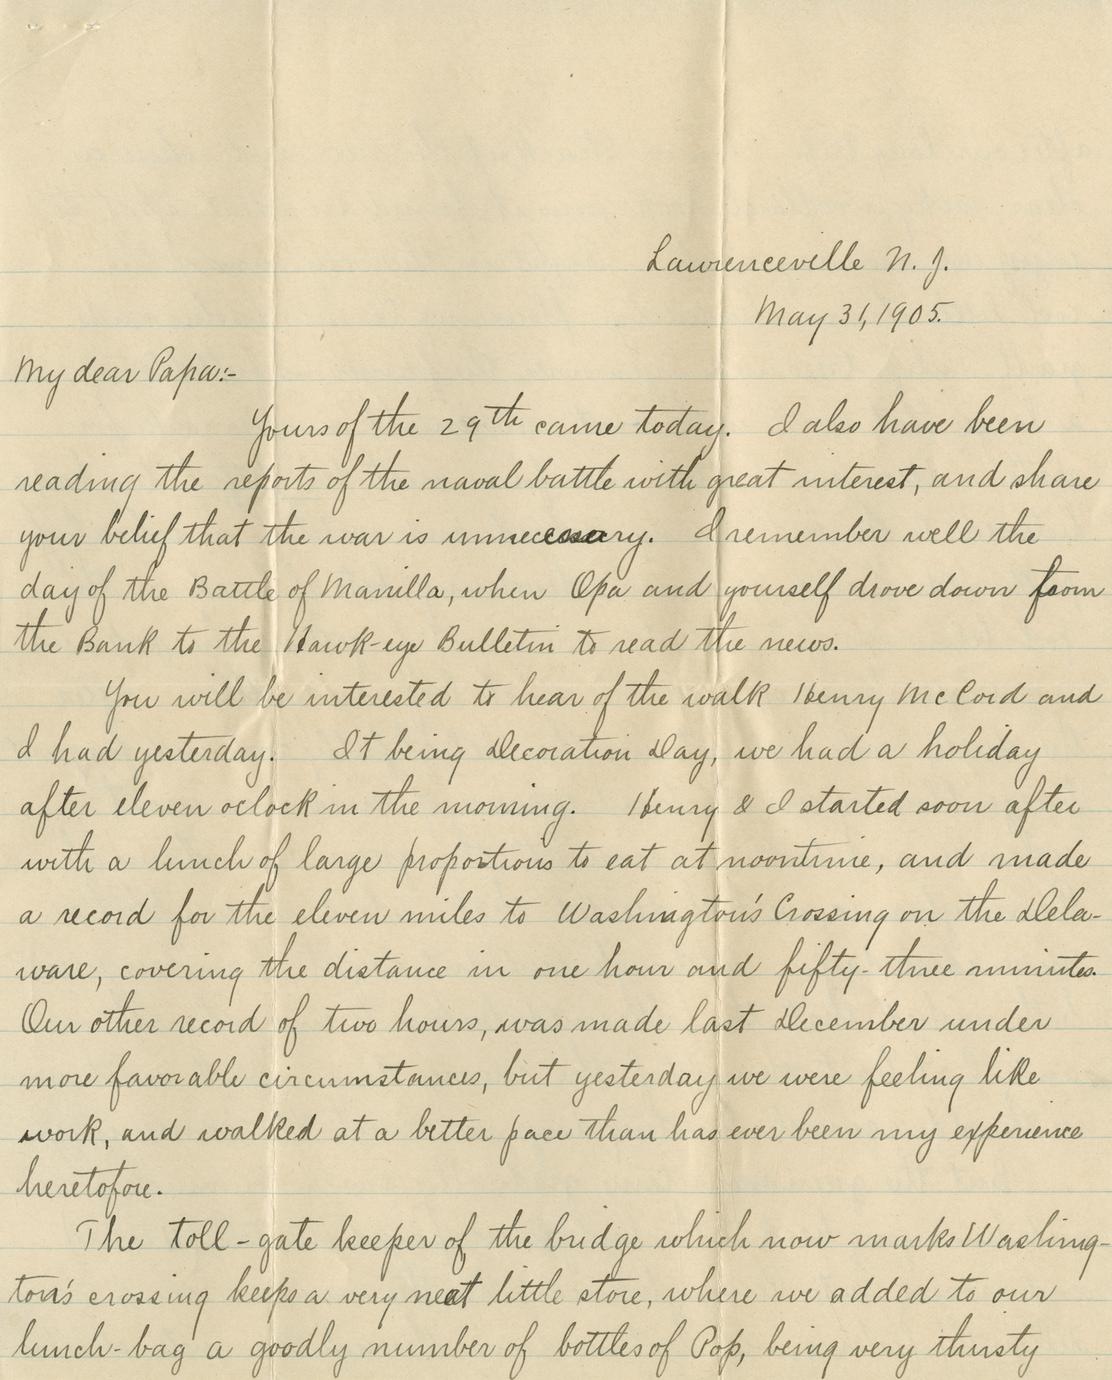 Lawrenceville N. J.
May 31, 1905.
My dear Papa:-
Yours of the 29th came today. I also have been
reading the reports of the naval battle with great interest, and share
your belief that the war is unnecessary. I remember well the
day of the Battle of Manilla, when Opa and yourself drove down from
the Bank to the Hawk-eye Bulletin to read the news.
You will be interested to hear of the walk Henry McCord and
I had yesterday. It being Decoration Day, we had a holiday
after eleven oclock in the morning. Henry & I started soon after
with a lunch of large proportions to eat at noontime, and made
a record for the eleven miles to Washington's Crossing on the Dela-
ware, covering the distance in one hour and fifty-three minutes.
Our other record of two hours, was made last December under
more favorable circumstances, but yesterday we were feeling like
work, and walked at a better pace than has ever been my experience
heretofore.
The toll-gate keeper of the bridge which now marks Washing-
ton's crossing keeps a very neat little store, where we added to our
lunch-bag a goodly number of bottles of Pop, being very thirsty